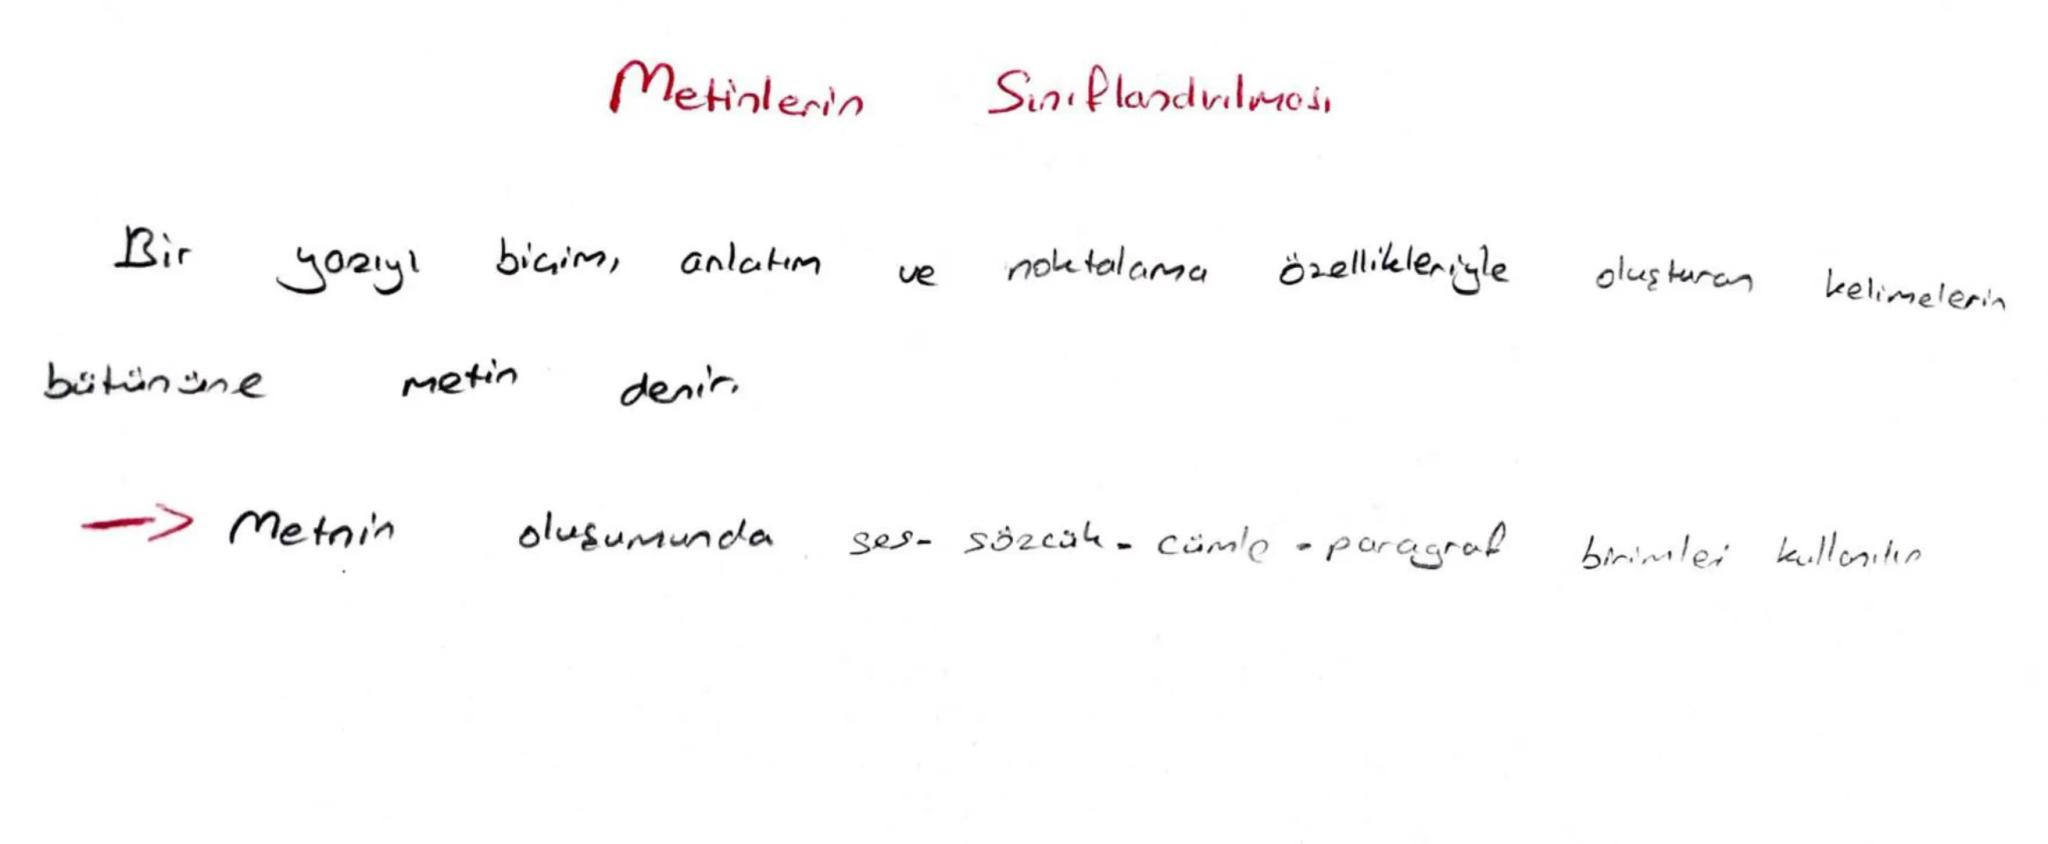 Metinlerin Sınıflandırılması
Bir yazıyı biçim, anlatım ve noktalama özellikleriyle oluşturan kelimelerin
bütününe metin denir.
→ Metnin oluşumunda ses- sözcük - cümle - paragraf birimleri kullanılır